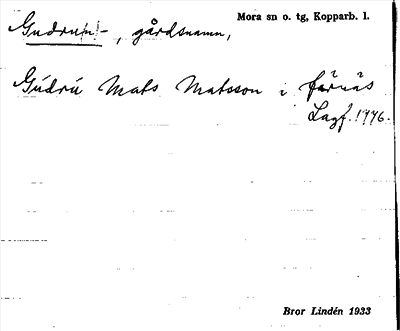 Mora sn o. tg, Kopparb. l.
Gudru(n)-, gårdsnamn,
Gúdrú Mats Matsson i Färnäs
Lagf. 1776.
Bror Lindén 1933